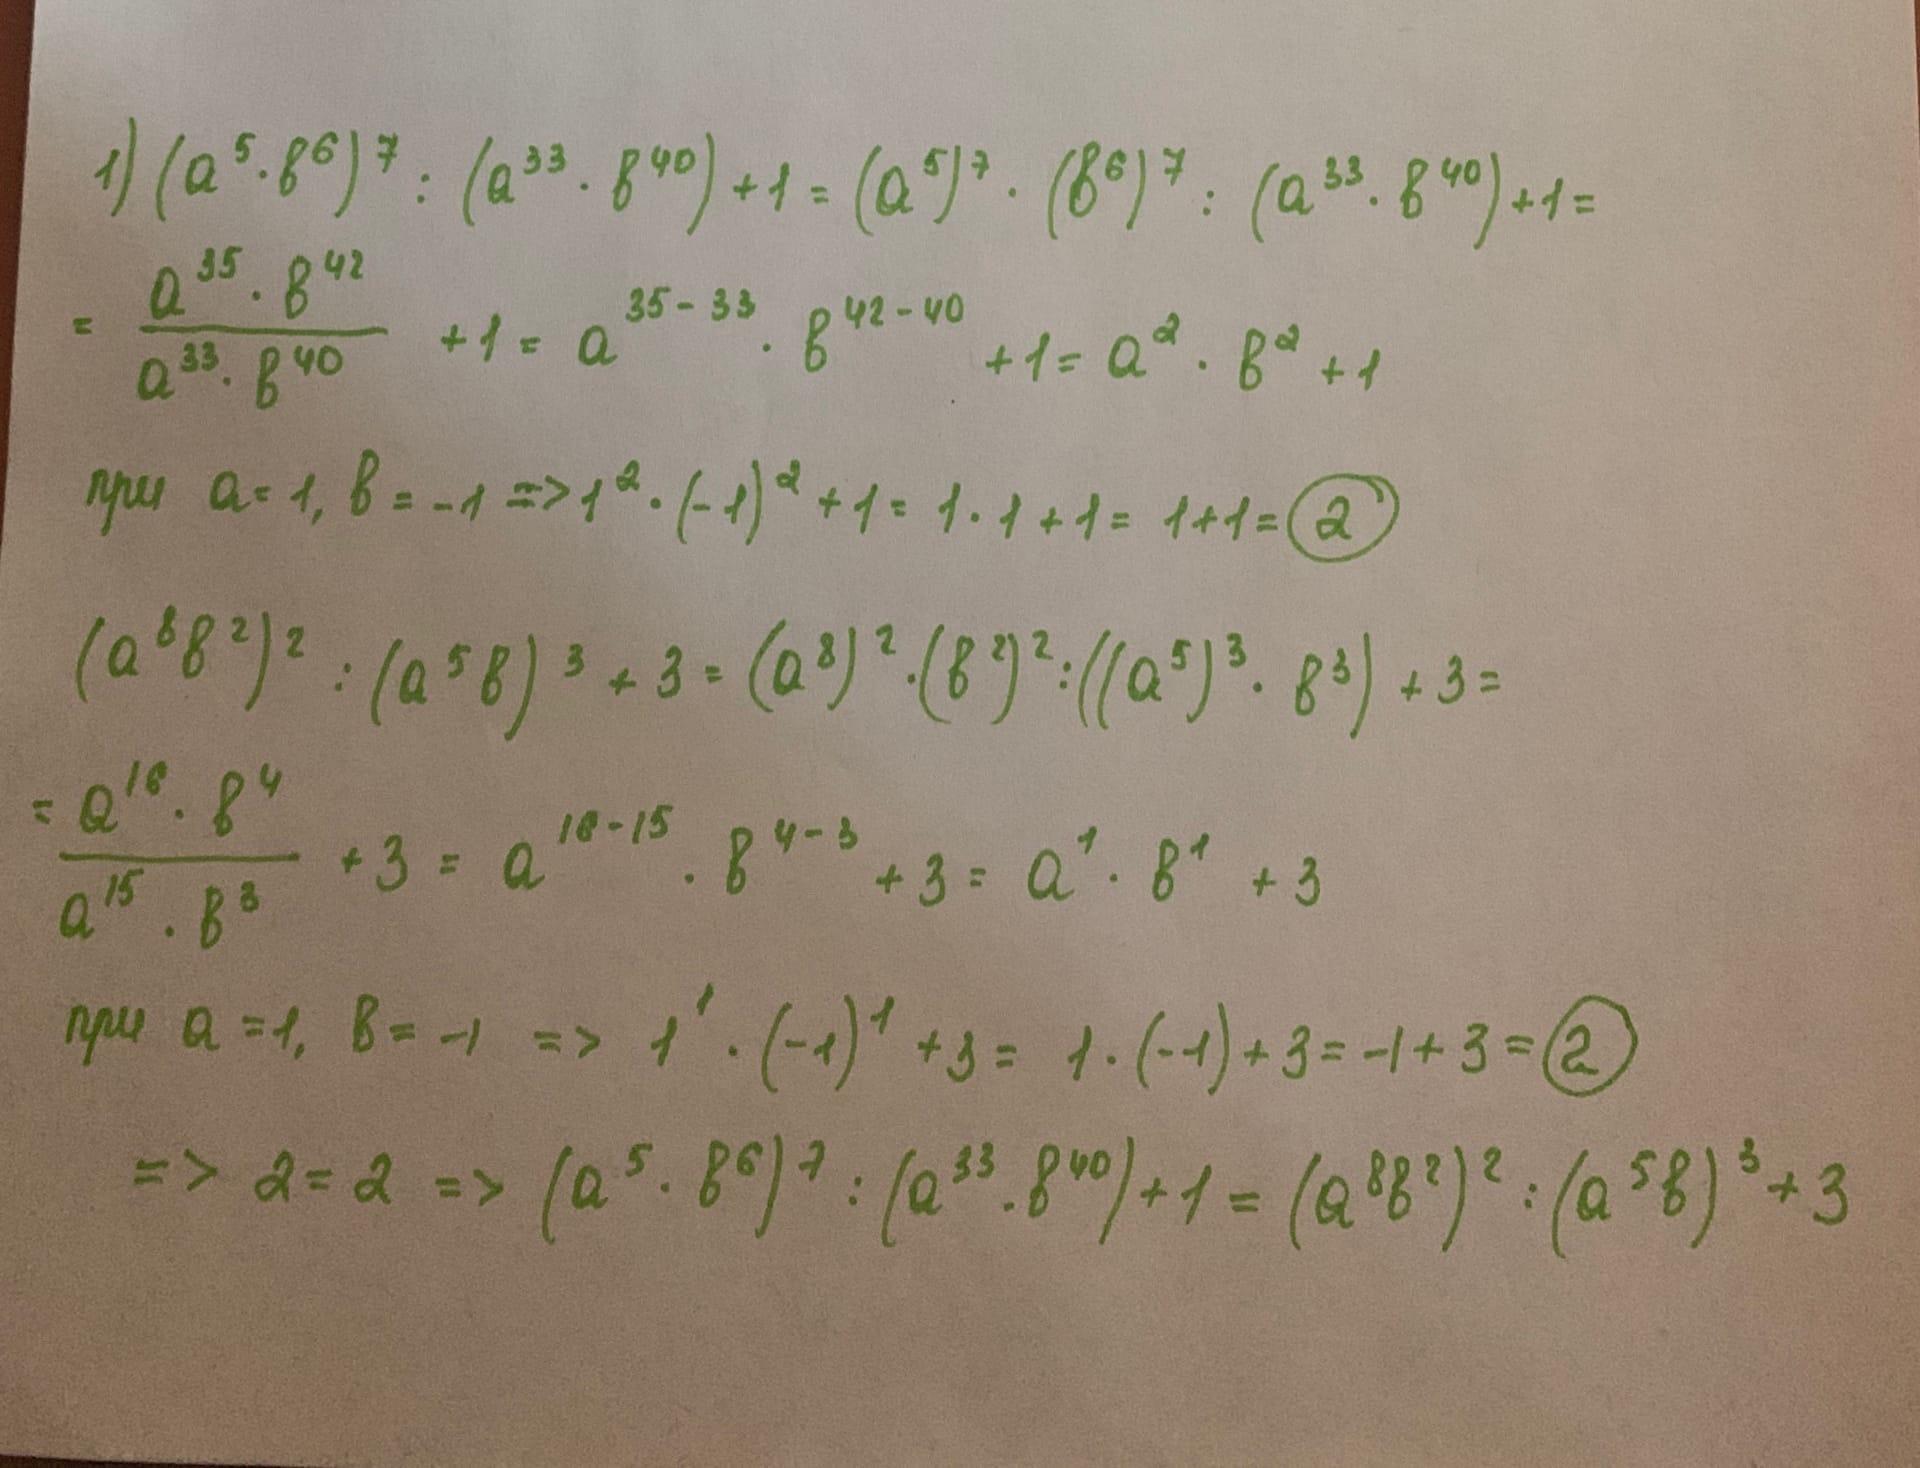 1) (a⁵·b⁶)⁷ : (a³³·b⁴⁰) + 1 = (a⁵)⁷ · (b⁶)⁷ : (a³³·b⁴⁰) + 1 =
= \frac{a³⁵·b⁴²}{a³³·b⁴⁰} + 1 = a³⁵⁻³³ · b⁴²⁻⁴⁰ + 1 = a² · b² + 1
при a = 1, b = -1 => 1² · (-1)² + 1 = 1 · 1 + 1 = 1 + 1 = 2
(a⁸b²)² : (a⁵b)³ + 3 = (a⁸)² · (b²)² : ((a⁵)³ · b³) + 3 =
= \frac{a¹⁶·b⁴}{a¹⁵·b³} + 3 = a¹⁶⁻¹⁵ · b⁴⁻³ + 3 = a¹ · b¹ + 3
при a = 1, b = -1 => 1¹ · (-1)¹ + 3 = 1 · (-1) + 3 = -1 + 3 = 2
=> 2 = 2 => (a⁵·b⁶)⁷ : (a³³·b⁴⁰) + 1 = (a⁸b²)² : (a⁵b)³ + 3